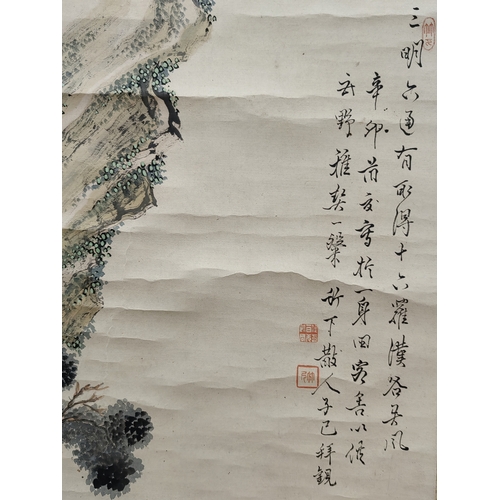 三明六通有取得十六羅漢各異風
辛卯首夏寫於一身田客舍以供
武野雅契一粲 折下散人子已拜